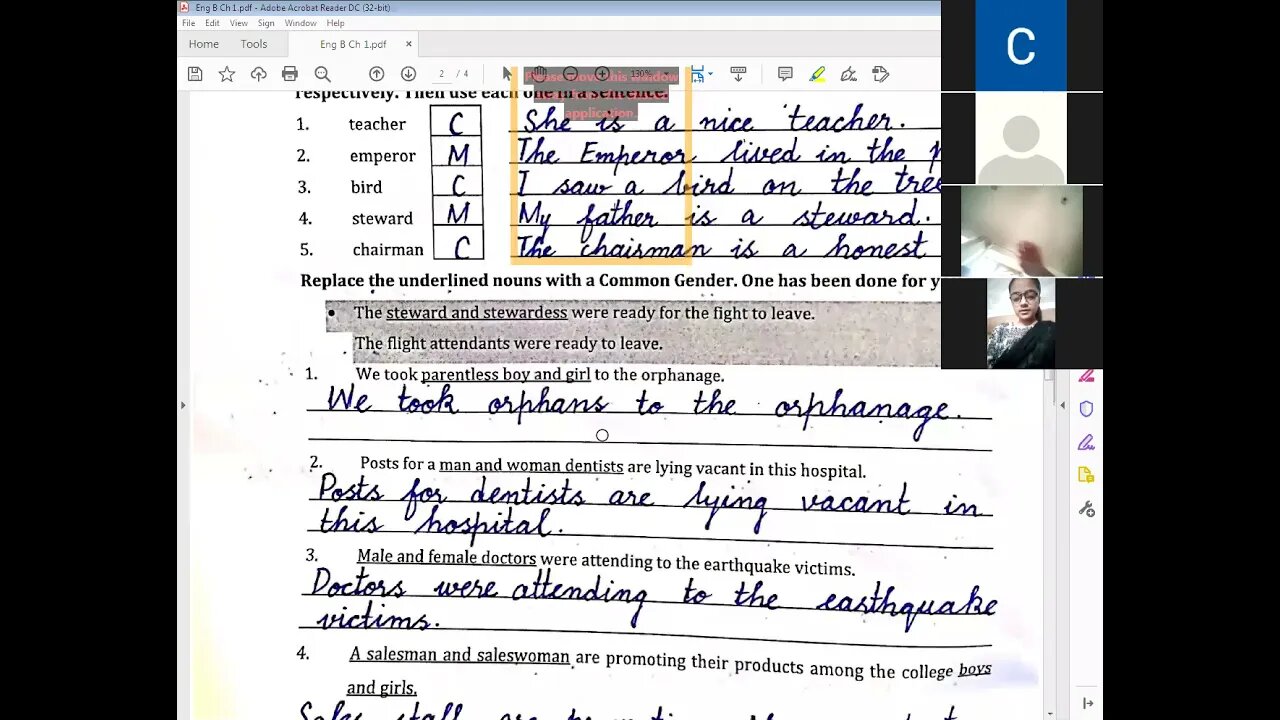 Eng B Ch 1.pdf - Adobe Acrobat Reader DC (32-bit)
File Edit View Sign Window Help
Home Tools Eng B Ch 1.pdf ×
2 / 4 130%
application.
C
respectively. Then use each one in a sentence.
1. teacher C She is a nice teacher.
2. emperor M The Emperor lived in the
3. bird C I saw a bird on the tree
4. steward M My father is a steward.
5. chairman C The chairman is a honest
Replace the underlined nouns with a Common Gender. One has been done for y
• The steward and stewardess were ready for the fight to leave.
The flight attendants were ready to leave.
1. We took parentless boy and girl to the orphanage.
We took orphans to the orphanage.
2. Posts for a man and woman dentists are lying vacant in this hospital.
Posts for dentists are lying vacant in
this hospital.
3. Male and female doctors were attending to the earthquake victims.
Doctors were attending to the earthquake
victims.
4. A salesman and saleswoman are promoting their products among the college boys
and girls.
Sales staff are